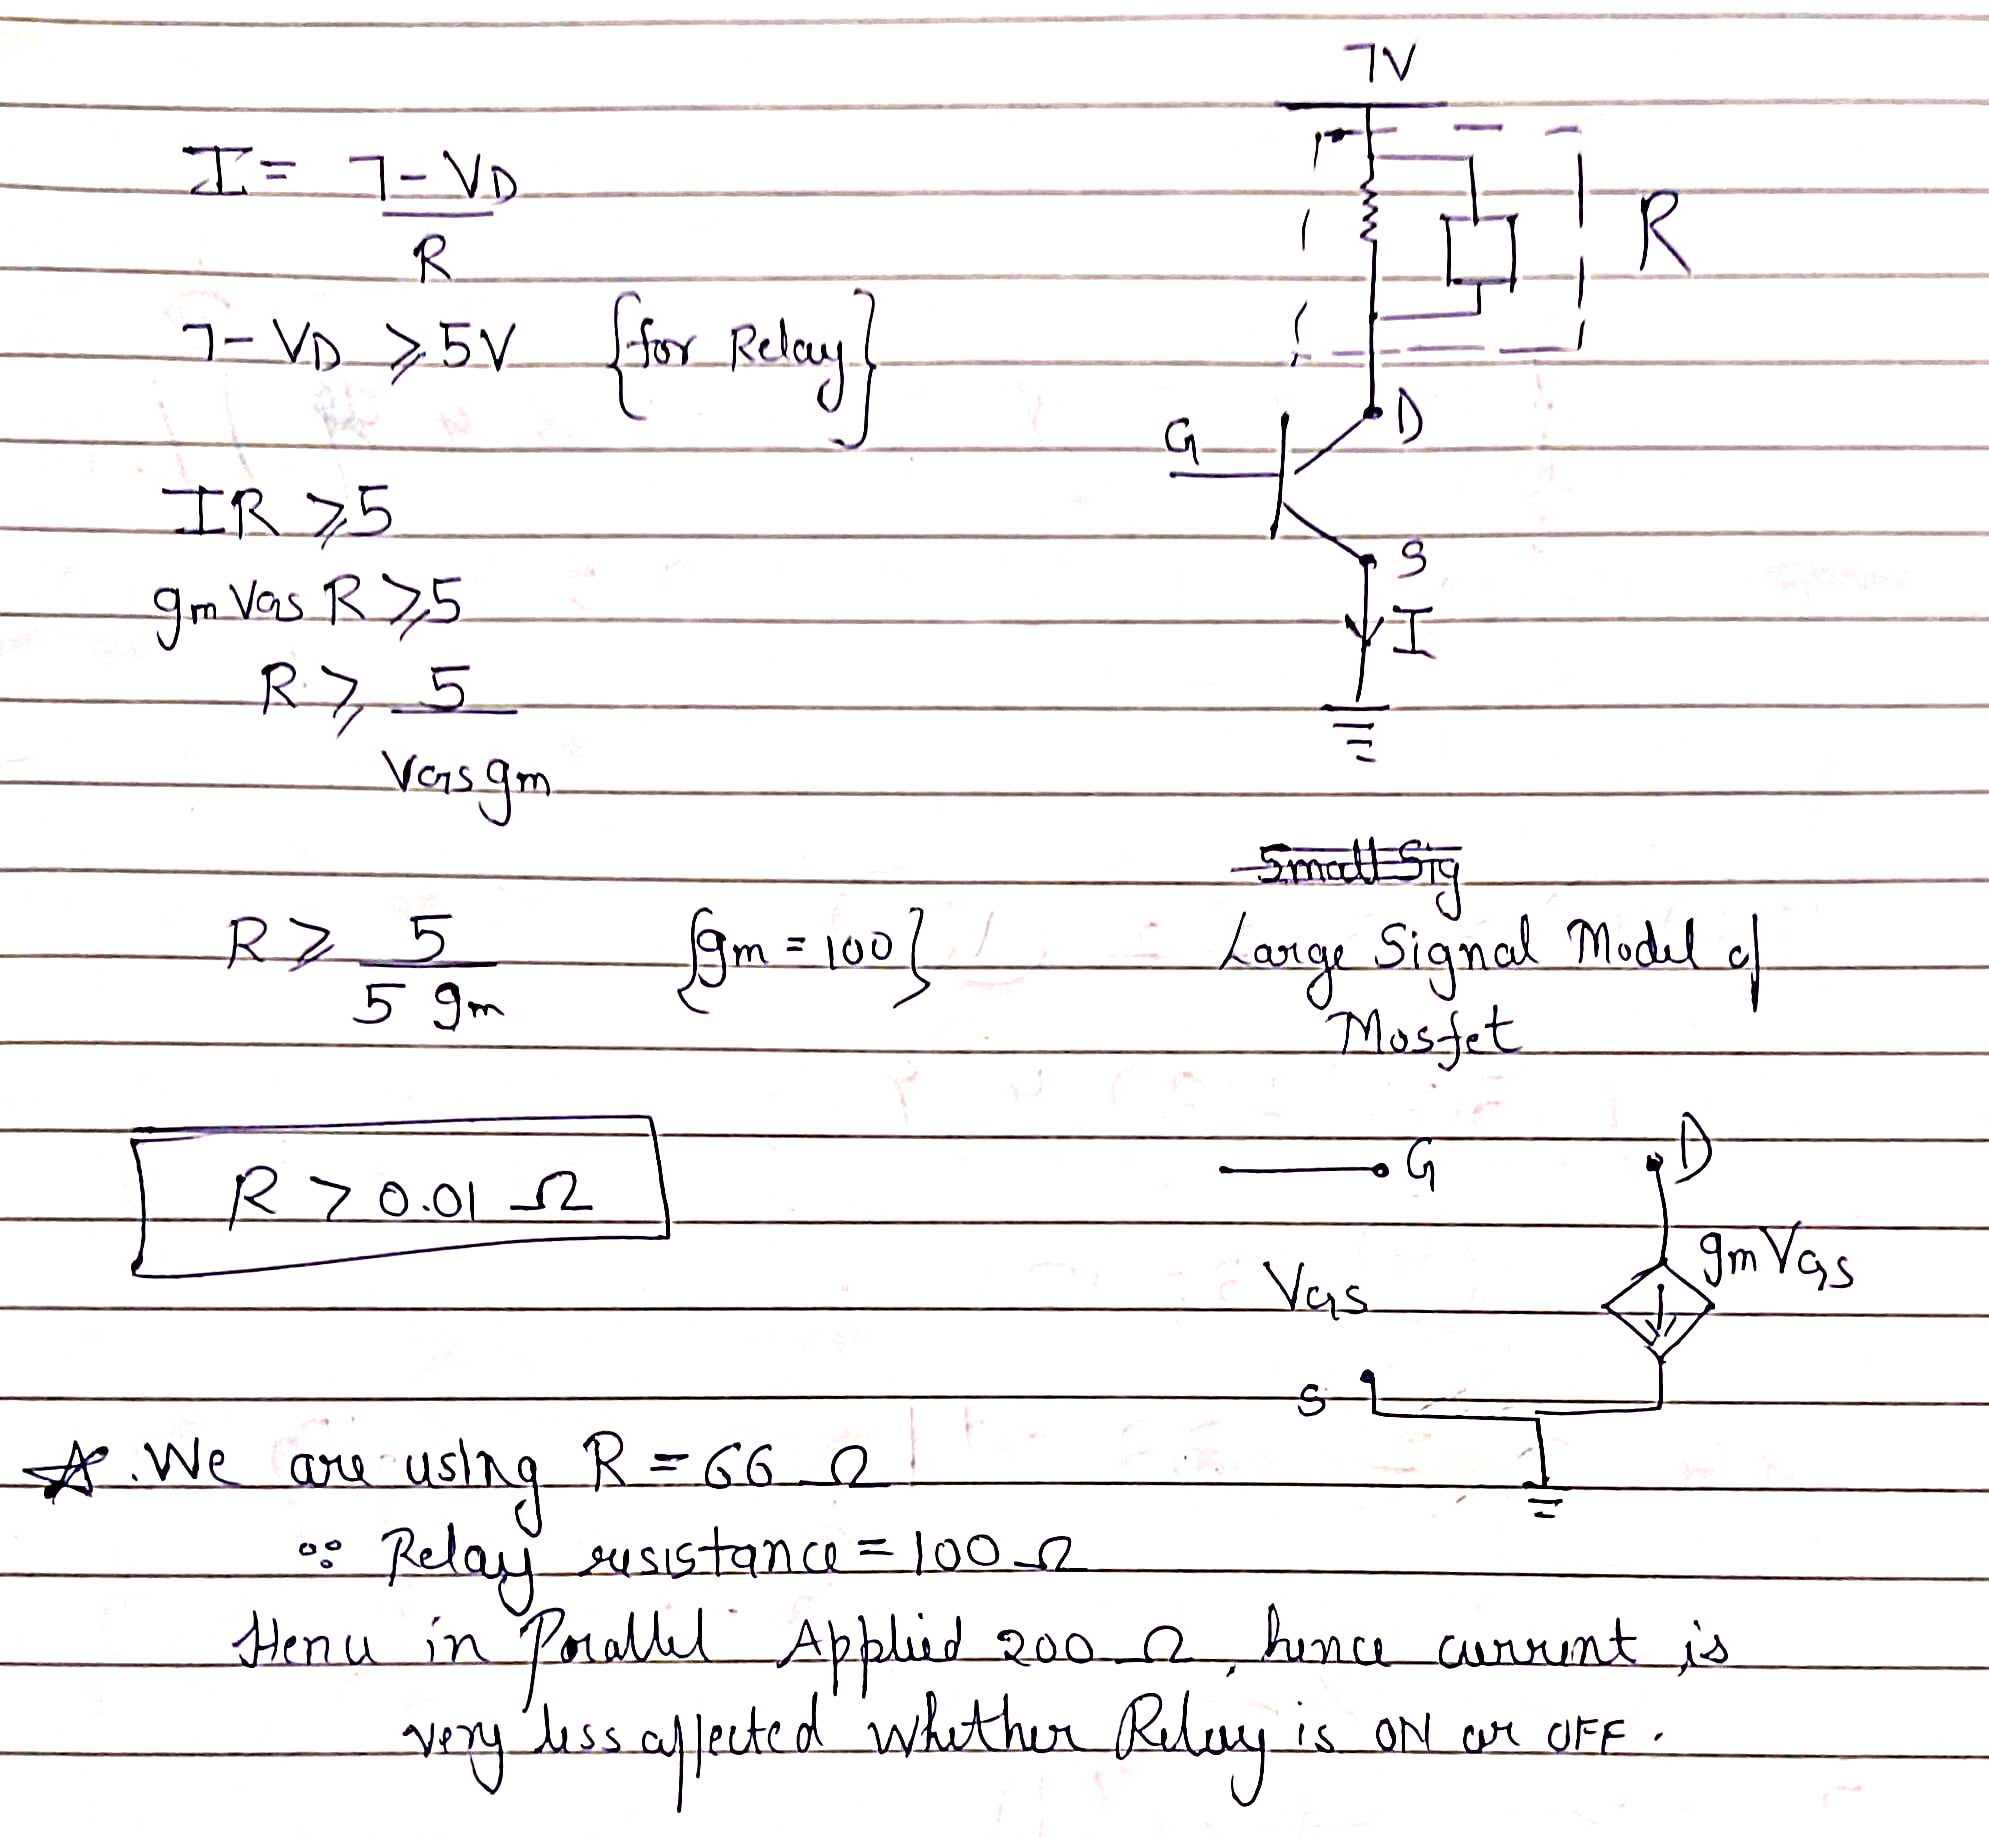 7V
I = 7 - VD
R
R
7 - VD ≥ 5V {for Relay}
D
G
IR ≥ 5
S
gm VGS R ≥ 5
I
R ≥ 5
VGS gm
Small Sig
R ≥ 5 {gm = 100}
5 gm
Large Signal Model of
Mosfet
G
D
R > 0.01 Ω
gm VGS
VGS
S
☆. We are using R = 66 Ω
∵ Relay resistance = 100 Ω
Henu in Porallel Applied 200 Ω, hence current is
very less affected whether Relay is ON or OFF.